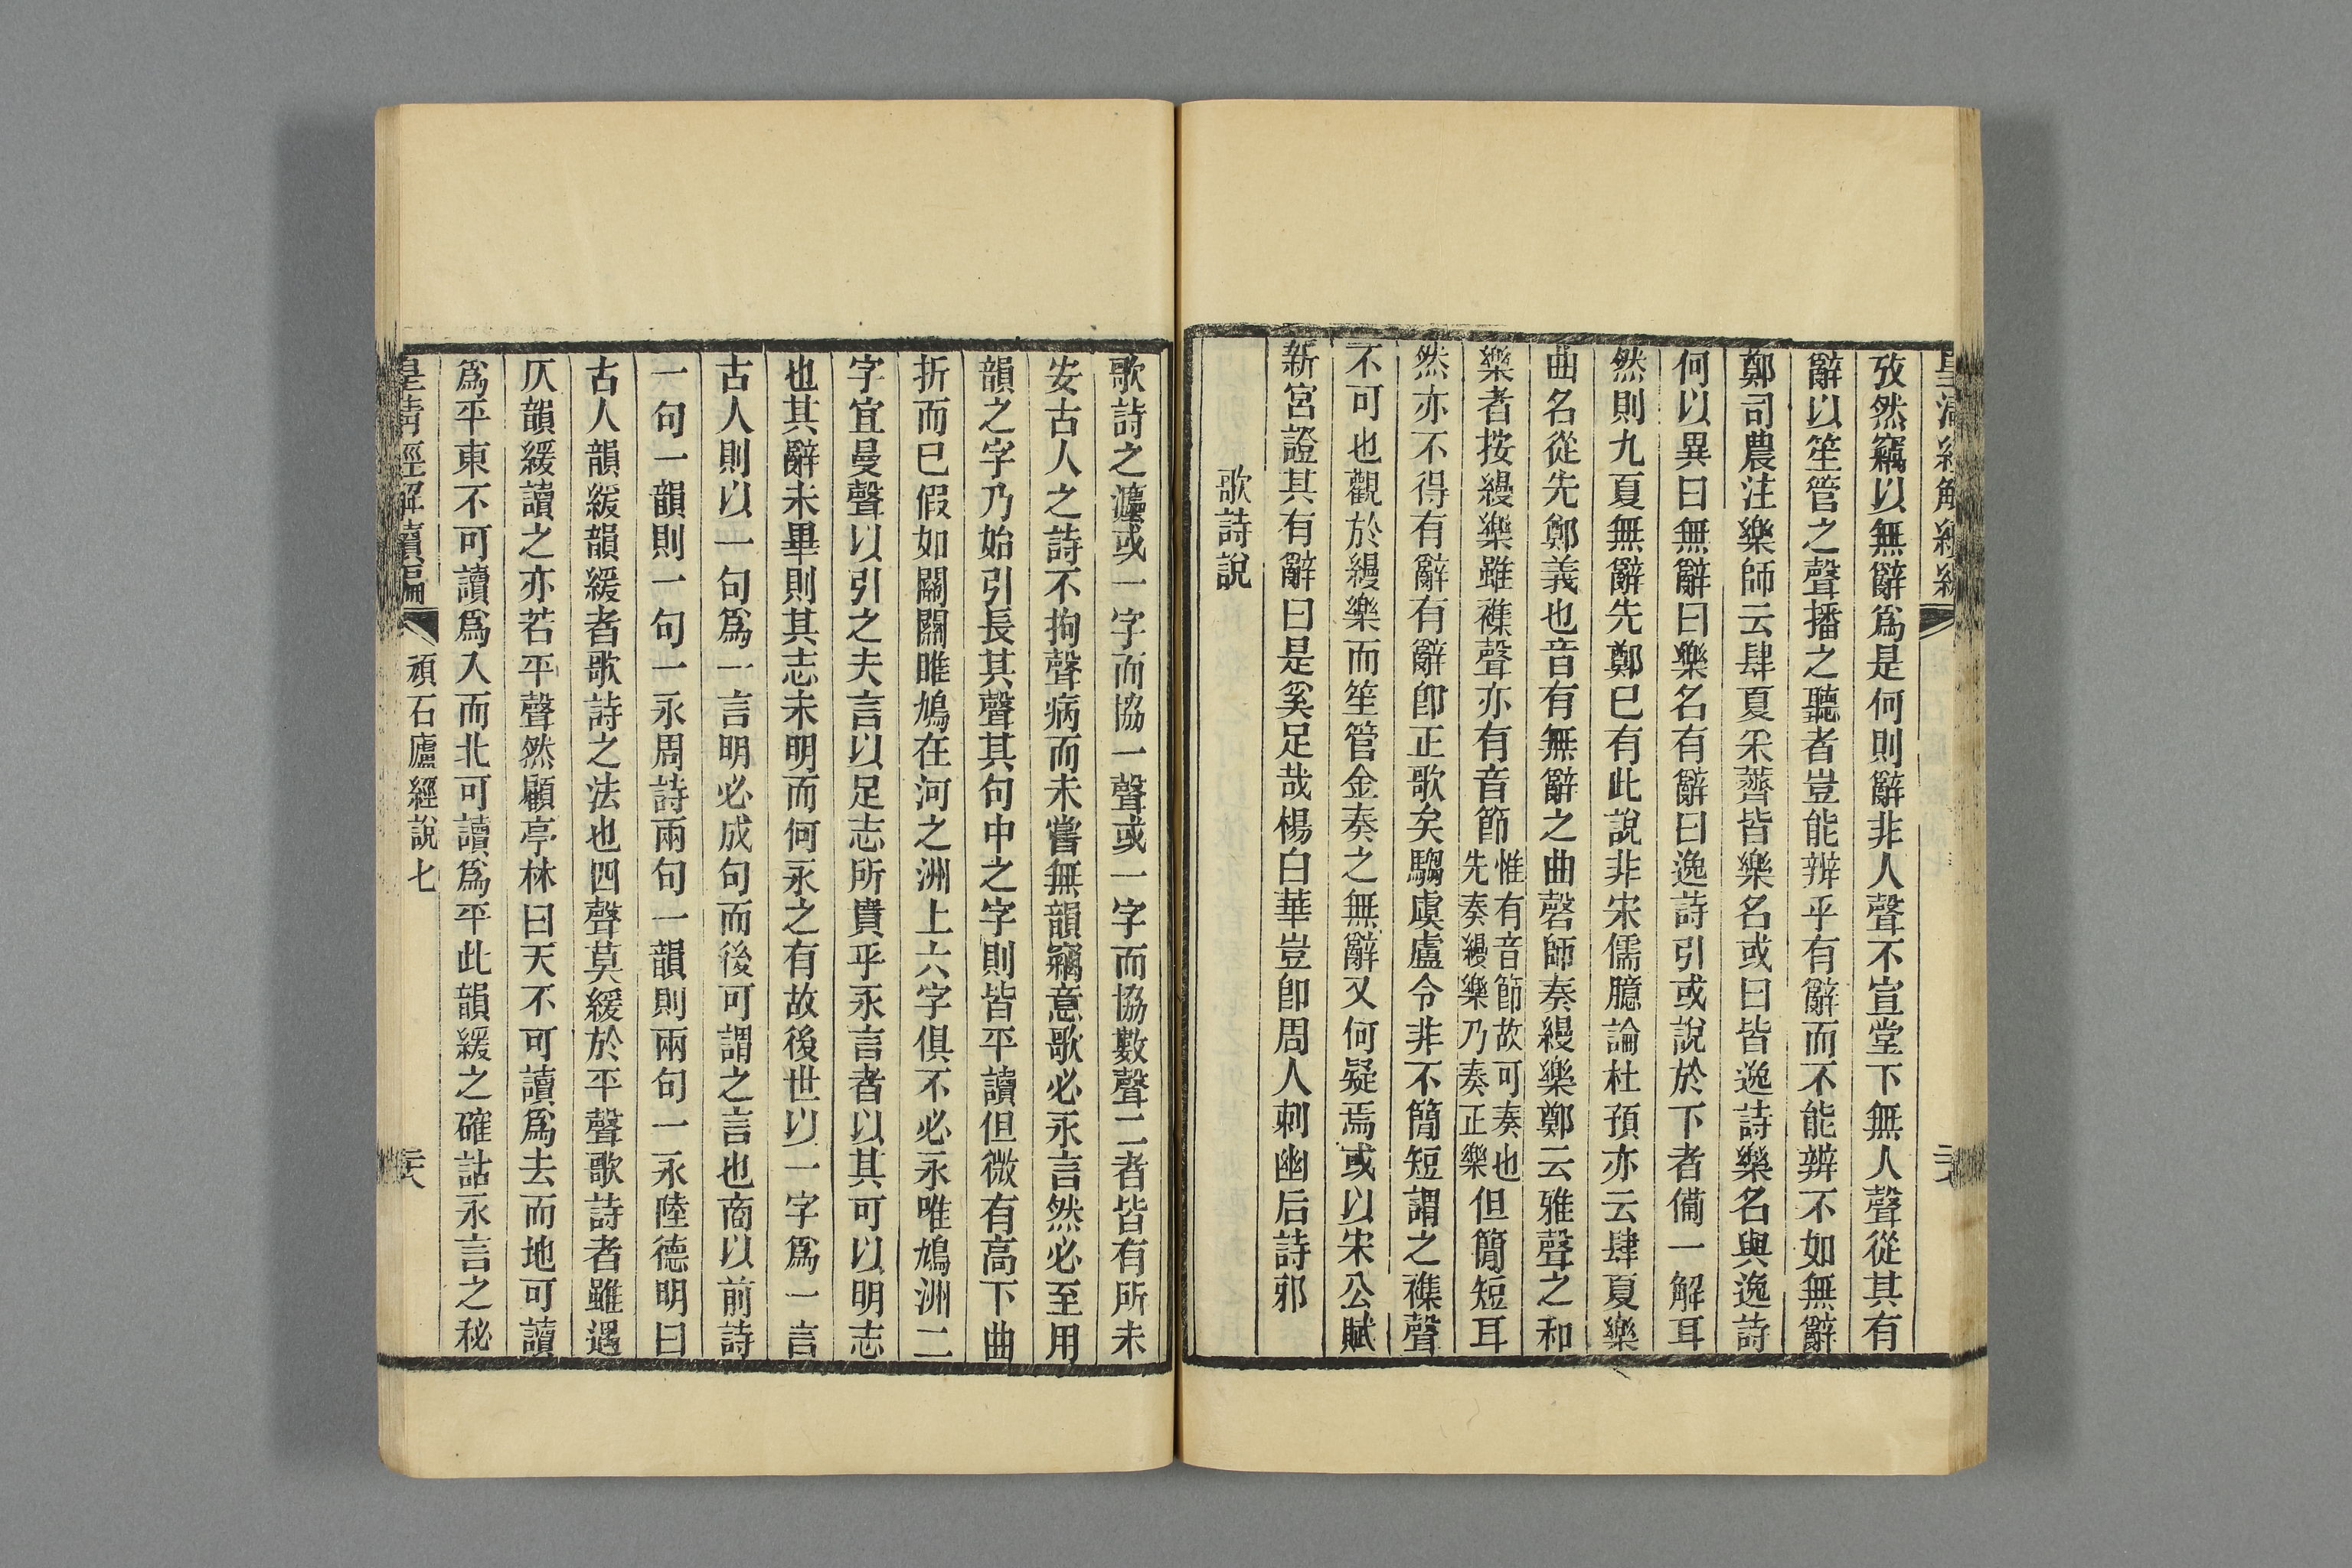 攷然竊以無辭爲是何則辭非人聲不宣堂下無人聲從其有
辭以笙管之聲播之聽者豈能辨乎有辭而不能辨不如無辭
鄭司農注樂師云肆夏采薺皆樂名或曰皆逸詩樂名與逸詩
何以異曰無辭曰樂名有辭曰逸詩引或說於下者備一解耳
然則九夏無辭先鄭已有此說非宋儒臆論杜預亦云肆夏樂
曲名從先鄭義也音有無辭之曲磬師奏縵樂鄭云雅聲之和
樂者按縵樂雖襍聲亦有音節惟有音節故可奏也先奏縵樂乃奏正樂但簡短耳
然亦不得有辭有辭卽正歌矣騶虞盧令非不簡短謂之襍聲
不可也觀於縵樂而笙管金奏之無辭又何疑焉或以宋公賦
新宮證其有辭曰是奚足哉楊白華豈卽周人刺幽后詩邪
歌詩說
歌詩之灋或一字而協一聲或一字而協數聲二者皆有所未
安古人之詩不拘聲病而未嘗無韻竊意歌必永言然必至用
韻之字乃始引長其聲其句中之字則皆平讀但微有高下曲
折而已假如關關雎鳩在河之洲上六字俱不必永唯鳩洲二
字宜曼聲以引之夫言以足志所貴乎永言者以其可以明志
也其辭未畢則其志未明而何永之有故後世以一字爲一言
古人則以一句爲一言明必成句而後可謂之言也商以前詩
一句一韻則一句一永周詩兩句一韻則兩句一永陸德明曰
古人韻緩韻緩者歌詩之法也四聲莫緩於平聲歌詩者雖遇
仄韻緩讀之亦若平聲然顧亭林曰天不可讀爲去而地可讀
爲平東不可讀爲入而北可讀爲平此韻緩之確詁永言之秘
皇清經解續編
頑石廬經說七